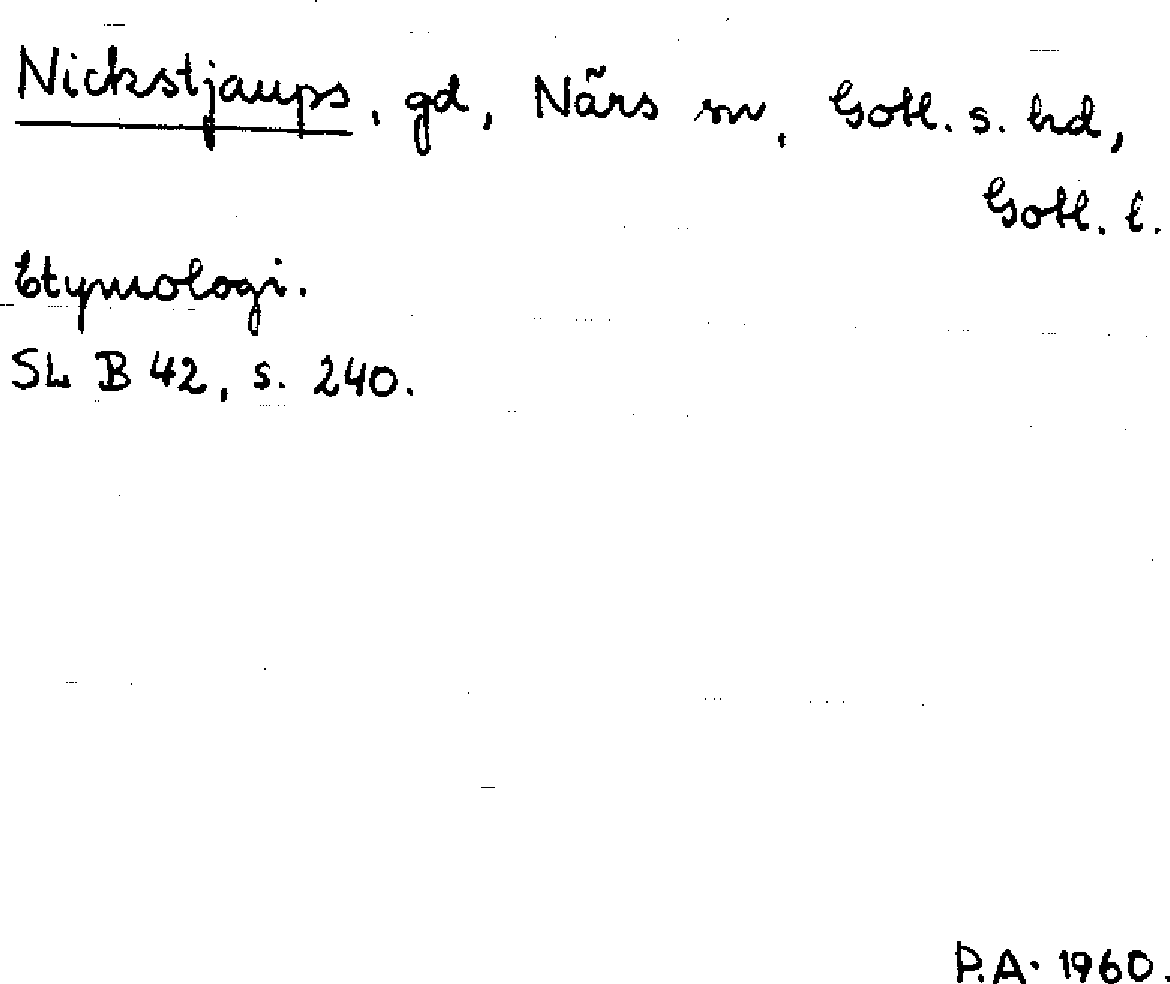 Nickstjaups, gd, Närs sn, Gotl. s. hd,
Gotl. l.
Etymologi.
SL B 42, s. 240.
P.A. 1960.